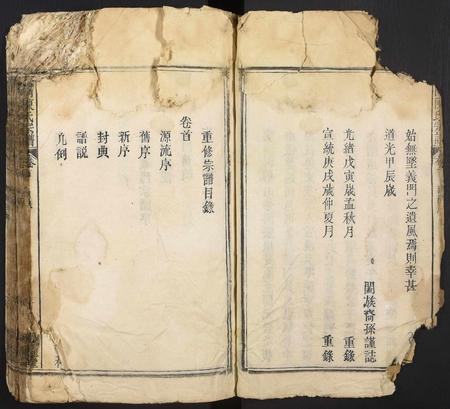 始無墜義門之遺風焉則幸甚
道光甲辰歲
闔族裔孫謹誌
光緒戊寅歲孟秋月 重錄
宣統庚戌歲仲夏月 重錄
重修宗譜目錄
卷首
源流序
舊序
新序
封典
譜説
凡例